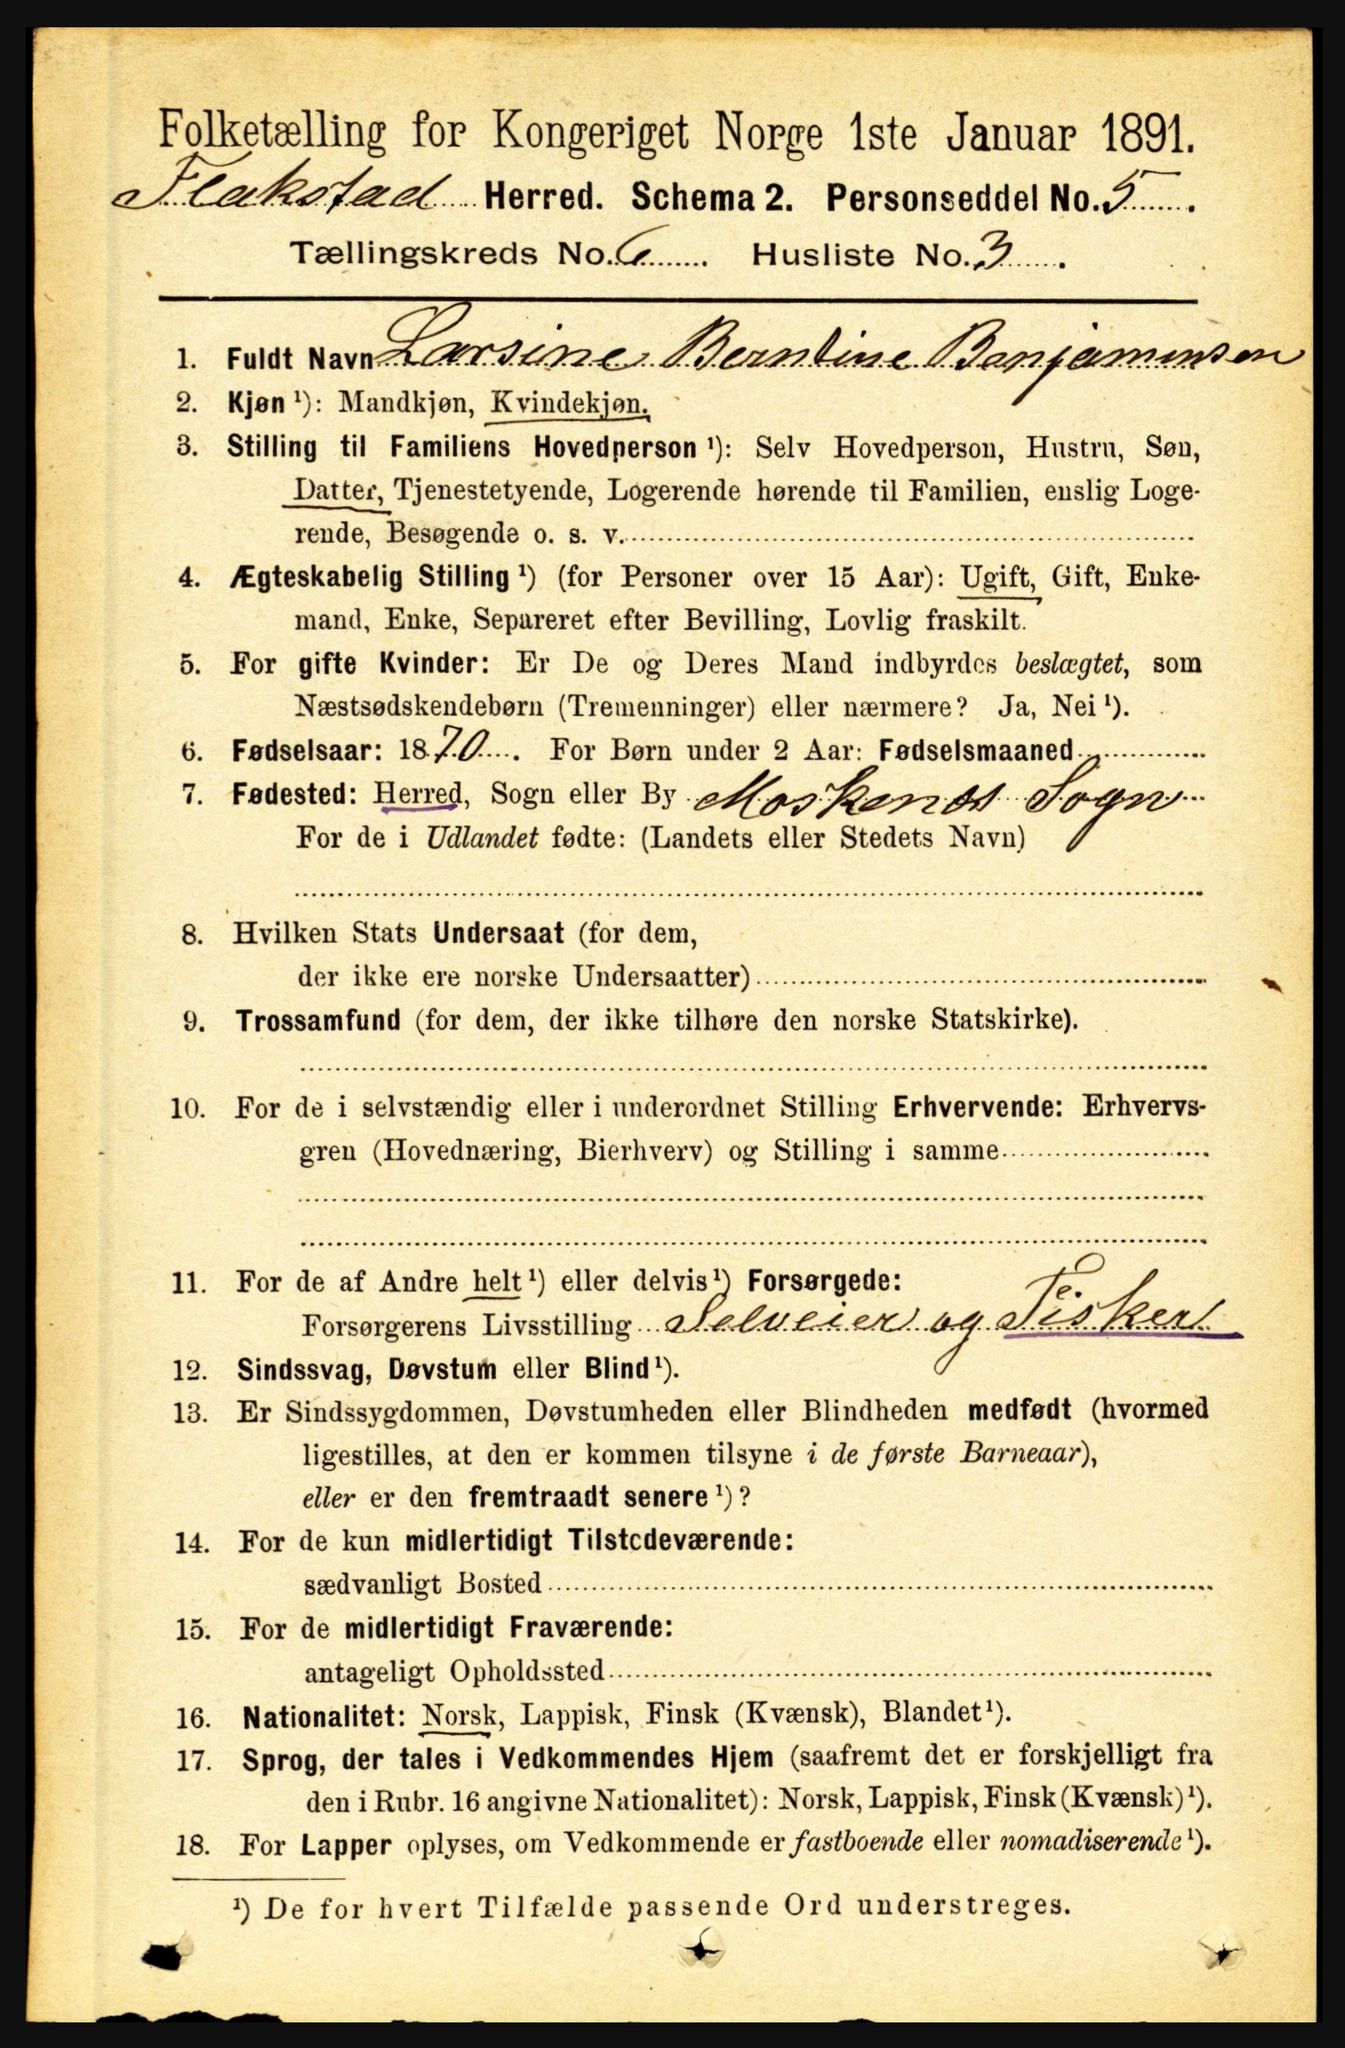 Folketælling for Kongeriget Norge 1ste Januar 1891.
Flakstad Herred. Schema 2. Personseddel No. 5.
Tællingskreds No. 6. Husliste No. 3.
1. Fuldt Navn Larsine Berntine Benjaminsen
2. Kjøn ¹): Mandkjøn, Kvindekjøn.
3. Stilling til Familiens Hovedperson ¹): Selv Hovedperson, Hustru, Søn,
Datter, Tjenestetyende, Logerende hørende til Familien, enslig Loge-
rende, Besøgende o. s. v.
4. Ægteskabelig Stilling ¹) (for Personer over 15 Aar): Ugift, Gift, Enke-
mand, Enke, Separeret efter Bevilling, Lovlig fraskilt.
5. For gifte Kvinder: Er De og Deres Mand indbyrdes beslægtet, som
Næstsødskendebørn (Tremenninger) eller nærmere? Ja, Nei ¹).
6. Fødselsaar: 1870. For Børn under 2 Aar: Fødselsmaaned
7. Fødested: Herred, Sogn eller By Moskenes Sogn
For de i Udlandet fødte: (Landets eller Stedets Navn)
8. Hvilken Stats Undersaat (for dem,
der ikke ere norske Undersaatter)
9. Trossamfund (for dem, der ikke tilhøre den norske Statskirke).
10. For de i selvstændig eller i underordnet Stilling Erhvervende: Erhvervs-
gren (Hovednæring, Bierhverv) og Stilling i samme
11. For de af Andre helt ¹) eller delvis ¹) Forsørgede:
Forsørgerens Livsstilling Selveier og Fisker
12. Sindssvag, Døvstum eller Blind ¹).
13. Er Sindssygdommen, Døvstumheden eller Blindheden medfødt (hvormed
ligestilles, at den er kommen tilsyne i de første Barneaar),
eller er den fremtraadt senere ¹)?
14. For de kun midlertidigt Tilstedeværende:
sædvanligt Bosted
15. For de midlertidigt Fraværende:
antageligt Opholdssted
16. Nationalitet: Norsk, Lappisk, Finsk (Kvænsk), Blandet ¹).
17. Sprog, der tales i Vedkommendes Hjem (saafremt det er forskjelligt fra
den i Rubr. 16 angivne Nationalitet): Norsk, Lappisk, Finsk (Kvænsk) ¹).
18. For Lapper oplyses, om Vedkommende er fastboende eller nomadiserende ¹).
¹) De for hvert Tilfælde passende Ord understreges.